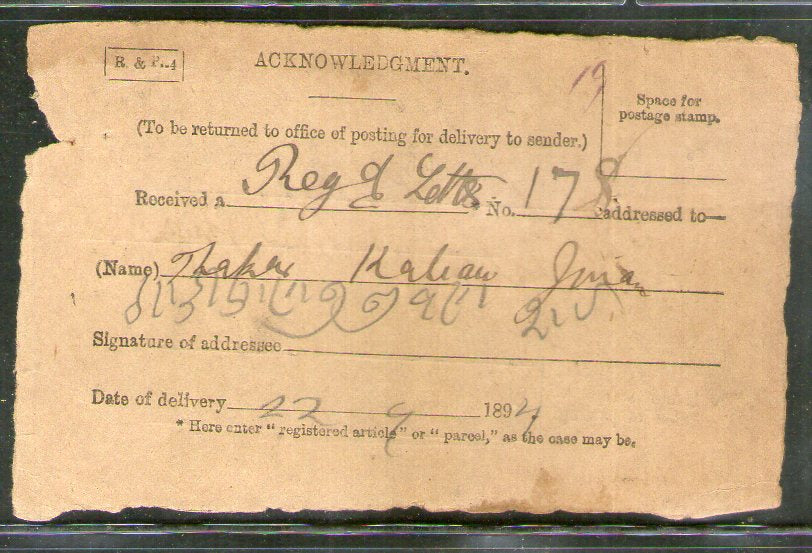 R. & P.-4
ACKNOWLEDGMENT.
19
Space for
postage stamp.
(To be returned to office of posting for delivery to sender.)
Received a Regd Letter * No. 178 addressed to—
(Name) Thakar Kalian
Signature of addressee
Date of delivery 22 9 1894
* Here enter "registered article" or "parcel," as the case may be.